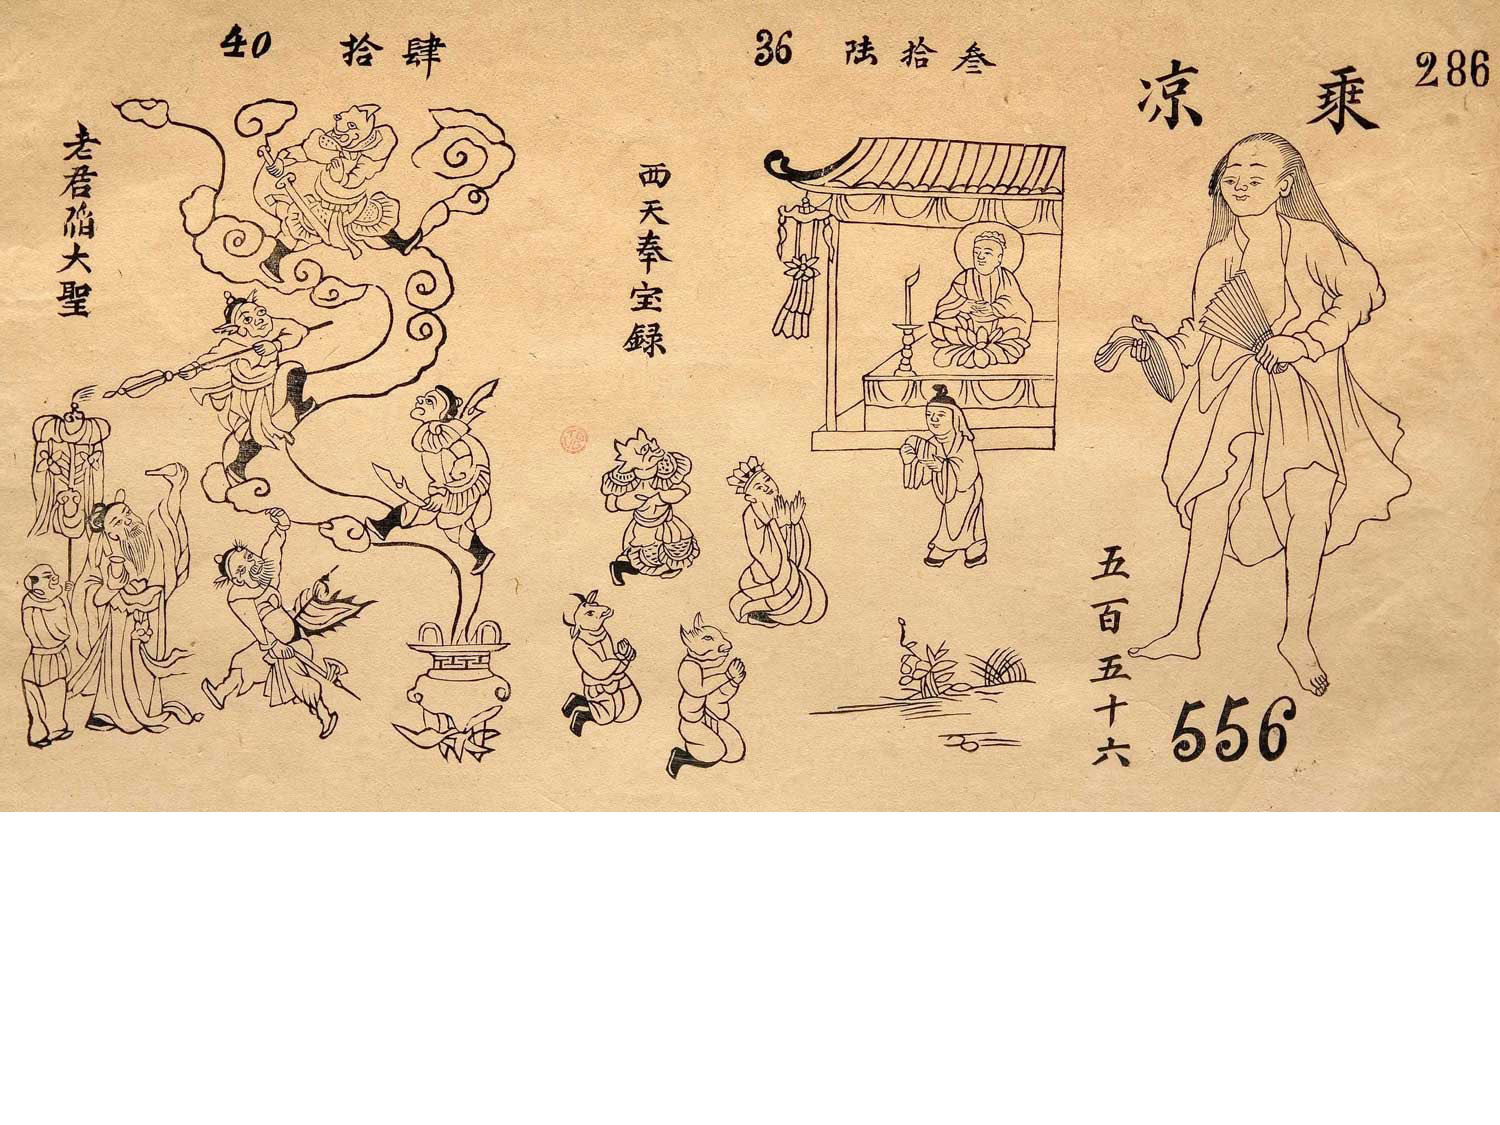 286
乘凉
五百五十六
556
36
叁拾陆
西天奉宝録
40
肆拾
老君大聖